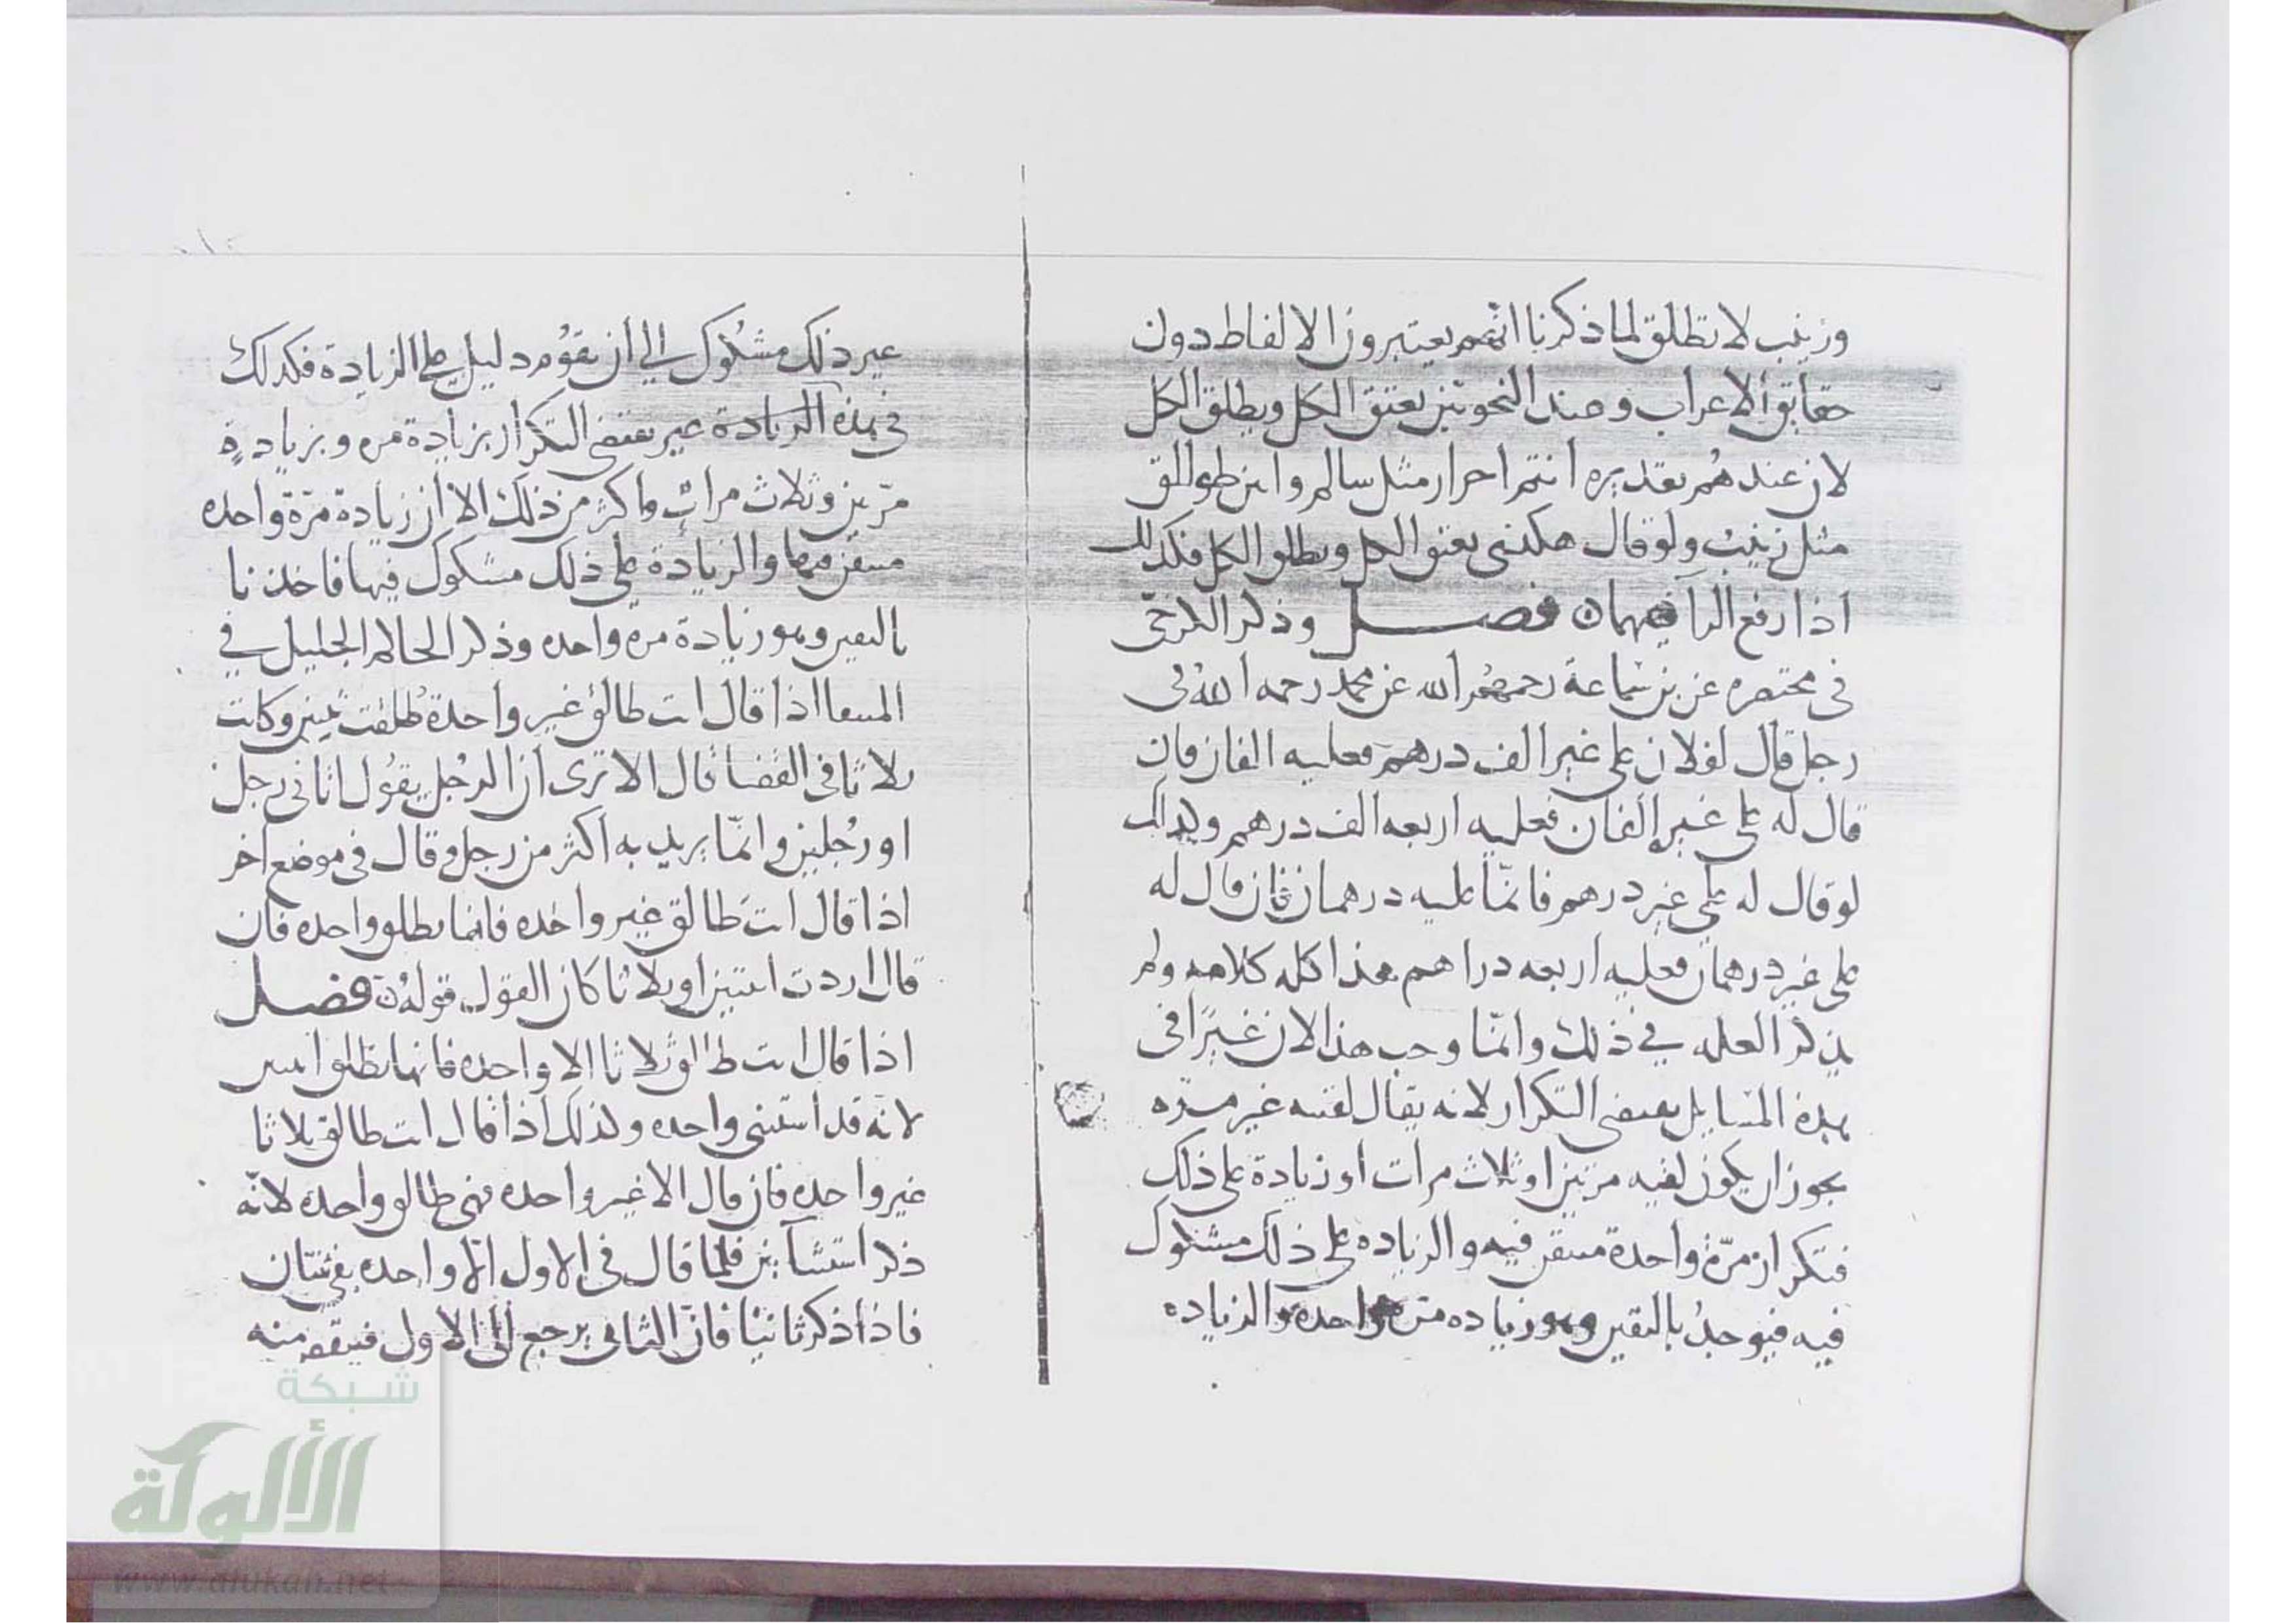 وزينب لا تطلق لما ذكرنا انهم يعتبرون الالفاظ دون
حقايق الاعراب وعند النحويين يعتق الكل ويطلق الكل
لان عندهم تقديره انتم احرار مثل سالم وانتن طوالق
مثل زينب ولو قال هكذى يعتق الكل ويطلق الكل فكذلك
اذا رفع الرا فيهما فصل وذكر الكرخى
فى مختصره عن بن سماعة رحمهم الله عن محمد رحمه الله فى
رجل قال لفلان على غير الف درهم فعليه الفان فان
قال له على غير الفان فعليه اربعه الف درهم وكذلك
لو قال له على غير درهم فانما عليه درهمان فان قال له
على غير درهمان فعليه اربعه دراهم هذا كله كلامه ولم
يذكر العله في ذلك وانما وجب هذا لان غيرا فى
هذه المسايل يقتضى التكرار لانه يقال لقيته غير مره
يجوز ان يكون لقيه مرتين او ثلاث مرات او زيادة على ذلك
فتكرار مرة واحدة متيقن فيه والزياده على ذلك مشكوك
فيه فيوخذ بالتيقين وهو زياده مرة واحده والزياده
غير ذلك مشكوك الي ان يقوم دليل على الزيادة فكذلك
فى هذه الزيادة غير يقتضى التكرار بزيادة مره وبزيادة
مرتين وثلاث مرات واكثر من ذلك الا ان زيادة مرة واحده
متيقن فيها والزيادة على ذلك مشكوك فيها فاخذنا
باليقين وهو زيادة مره واحده وذكر الحاكم الجليل في
المنتقا اذا قال انت طالق غير واحدة طلقت ثنتين وكانت
ثلاثا فى القضا قال الا ترى ان الرجل يقول اتانى رجل
او رجلين وانما يريد به اكثر من رجل وقال فى موضع اخر
اذا قال انت طالق غير واحده فانما تطلق واحده فان
قال اردت اثنتين او ثلاثا كان القول قوله فصل
اذا قال انت طالق ثلاثا الا واحده فانها تطلق اثنتين
لانه قد استثنى واحده وكذلك اذا قال انت طالق ثلاثا
غير واحده فان قال الا غير واحده فهى طالق واحده لانه
ذكر استثنائين فلما قال فى الاول الا واحده بقى ثنتان
فاذا ذكر ثانيا فان الثانى يرجع الى الاول فينقص منه
شبكة
الألوكة
www.alukah.net